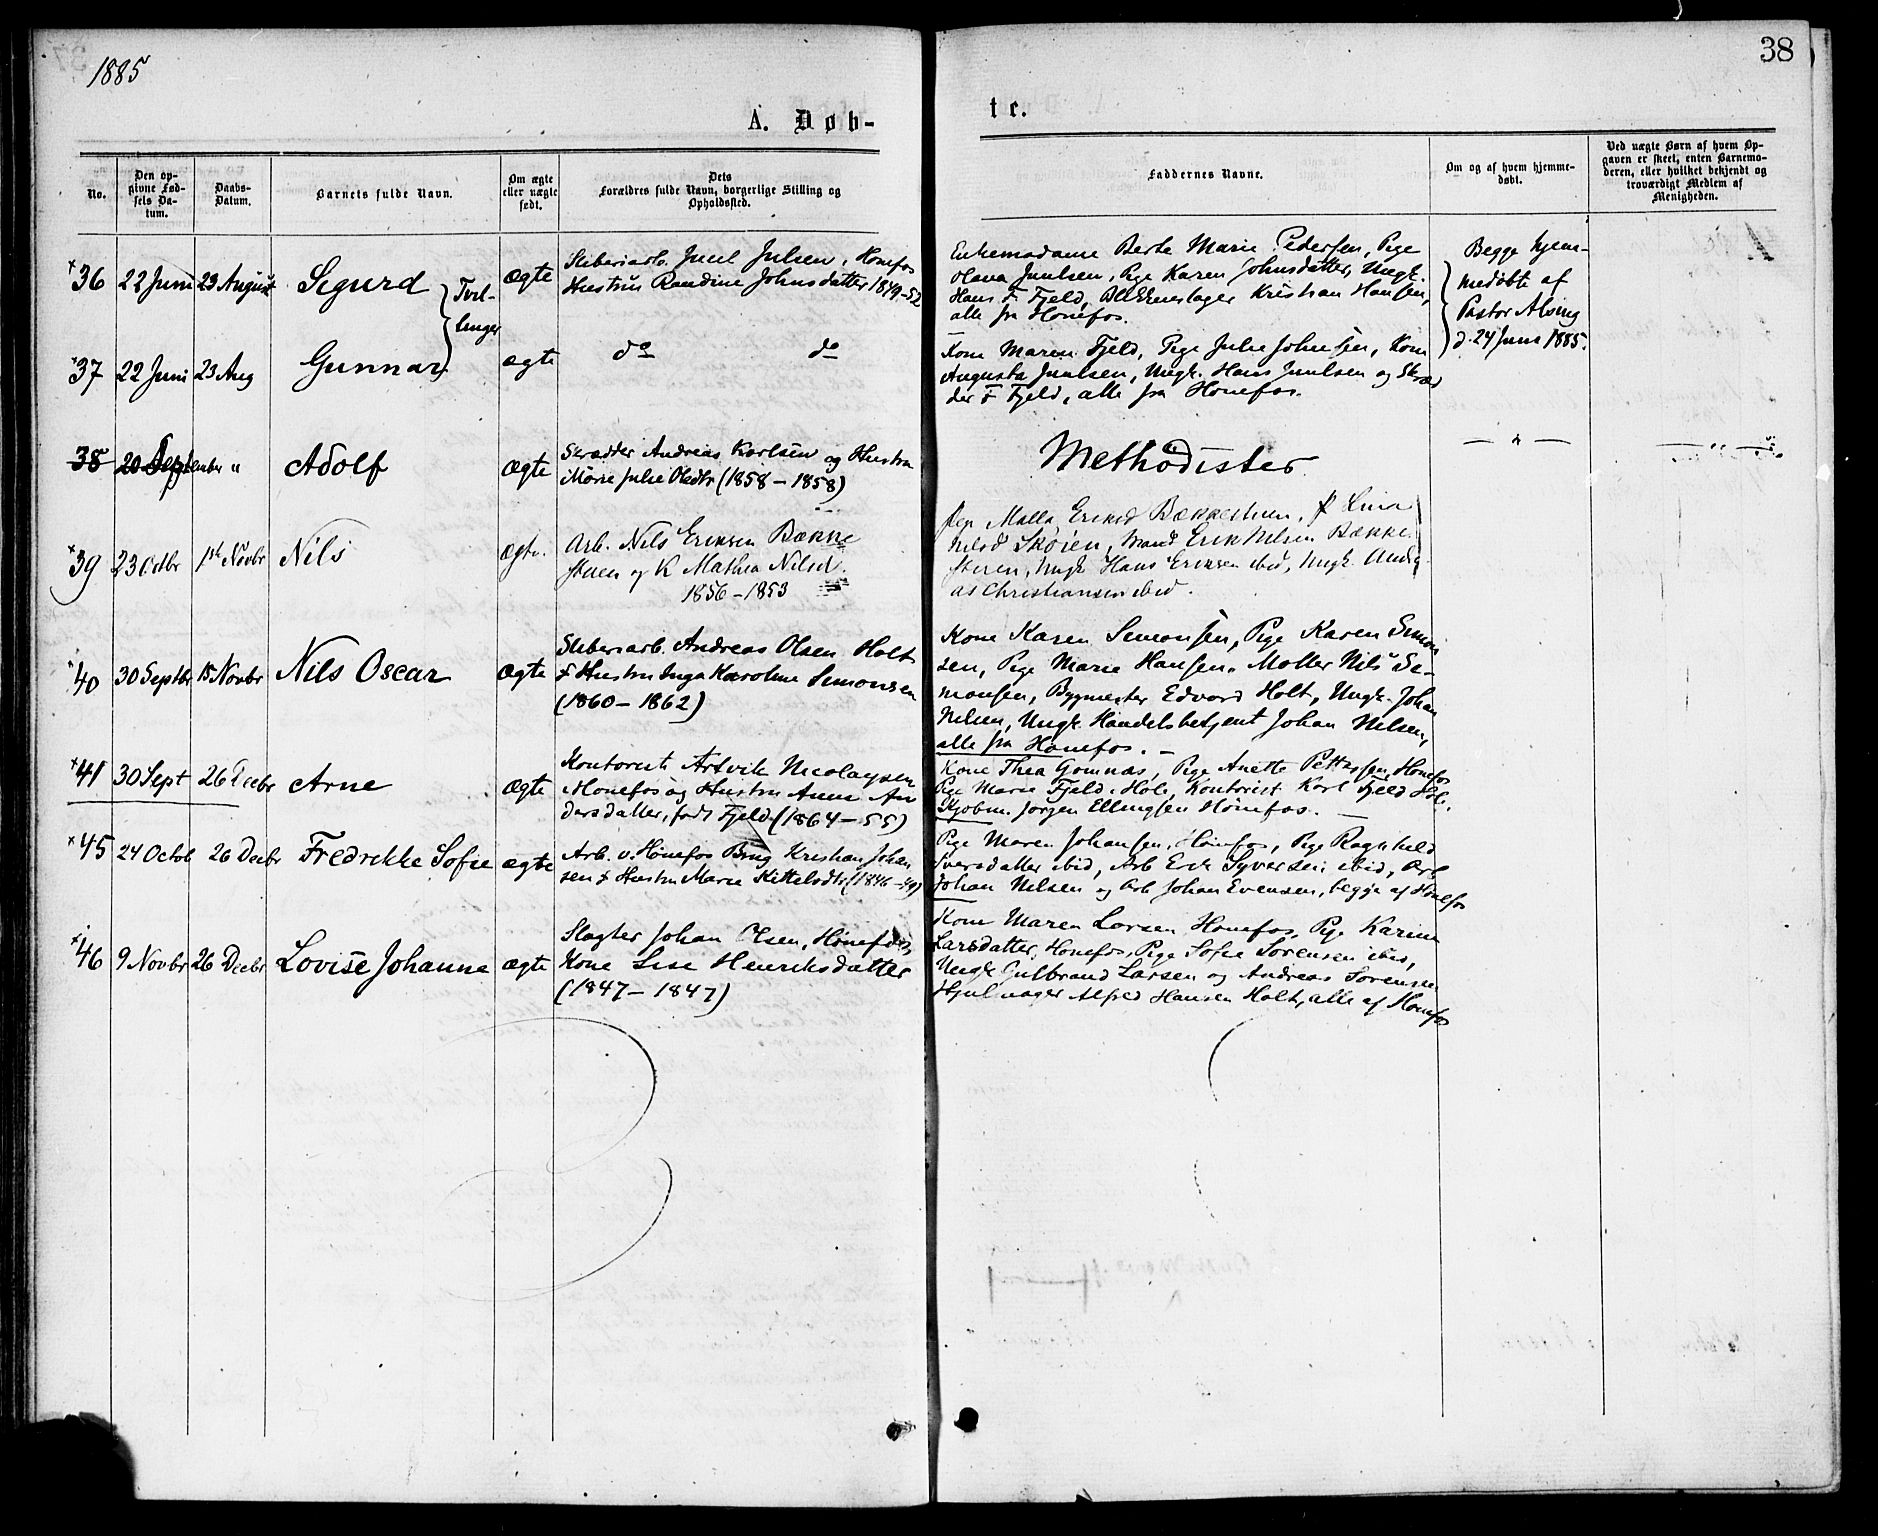 1885
38
A. Døb-
te.
No.
Den op-
givne Fød-
sels Da-
tum.
Daabs-
Datum.
Barnets fulde Navn.
Om ægte
eller uægte
født.
Dets
Forældres fulde Navn, borgerlige Stilling og
Opholdssted.
Faddernes Navne.
Om og af hvem hjemme-
døbt.
Ved uægte Børn af hvem Op-
gaven er skeet, enten Barnemo-
deren, eller hvilket bekjendt og
troværdigt Medlem af
Menigheden.
36 22 Juni 23 August Sigurd Tvil-
linger
ægte
Sliberiarb. Juul Julsen, Hønefos
Hustru Randine Johnsdatter 1849-52
Enkemadame Berte Marie Pedersen, Pige
Olava Juulsen, Pige Karen Johnsdatter, Ungk.
Hans F. Fjeld, Blikkenslager Kristian Hansen,
alle fra Hønefos.
Begge hjem-
medøbte af
Pastor Alsing
d. 24 Juni 1885.
37 22 Juni 23 Aug Gunnar ægte do do
Kone Maren Fjeld, Pige Julie Johnsen, Kone
Augusta Juulsen, Ungk. Hans Juulsen og Skræd
der F Fjeld, alle fra Hønefos.
38 20 September " Adolf ægte
Skrædder Andreas Karlsen og Hustru
Marie Julie Olsdtr (1858-1858)
Methodister
— " —
— " —
39 23 Octbr 1ste Novbr Nils ægte.
Arb. Nils Eriksen Bække
stuen og K Mathea Nilsd.
1856-1853
Pige Malla Eriksd Bækkestuen, P Lina
Nilsd Skøien, Mand Erik Nilsen Bække
stuen, Ungk Hans Eriksen ibid, Ungk. Andre
as Christiansen ibid.
40 30 Septbr 15 Novbr Nils Oscar ægte
Sliberiarb. Andreas Olsen Holt
& Hustru Inga Karoline Simonsen
(1860-1862)
Kone Karen Simonsen, Pige Karen Simon
sen, Pige Marie Hansen, Møller Nils Si-
monsen, Bygmester Edvard Holt, Ungk. Johan
Nilsen, Ungk. Handelsbetjent Johan Nilsen,
alle fra Hønefos. —
41 30 Sept 26 Decbr Arne ægte
Kontorist Artvik Nicolaysen
Hønefos og Hustru Anna An
dersdatter, født Fjeld (1864-55)
Kone Thea Gomnæs, Pige Anette Pettersen, Hønefos
Pige Marie Fjeld, Hole, Kontorist Karl Fjeld Hole.
Kjøbm. Jørgen Ellingsen Hønefos. —
45 24 Octob 26 Decbr Fredrikke Sofie ægte
Arb. v. Hønefos Brug Kristian Johan
sen & Hustru Marie Kittelsdtr (1846-49)
Pige Maren Johansen, Hønefos, Pige Ragnhild
Iversdatter ibid, Arb Erik Syversen ibid, Arb
Johan Nilsen og Arb Johan Evensen, begge af Hønefos
46 9 Novbr 26 Decbr Lovise Johanne ægte
Slagter Johan Olsen, Hønefos,
Kone Lise Henriksdatter
(1847-1847)
Kone Maren Larsen Hønefos, Pige Karine
Larsdatter, Hønefos, Pige Sofie Sørensen ibid,
Ungk Gulbrand Larsen og Andreas Sørensen
Hjulmager Alfred Hansen Holt, alle af Hønefos